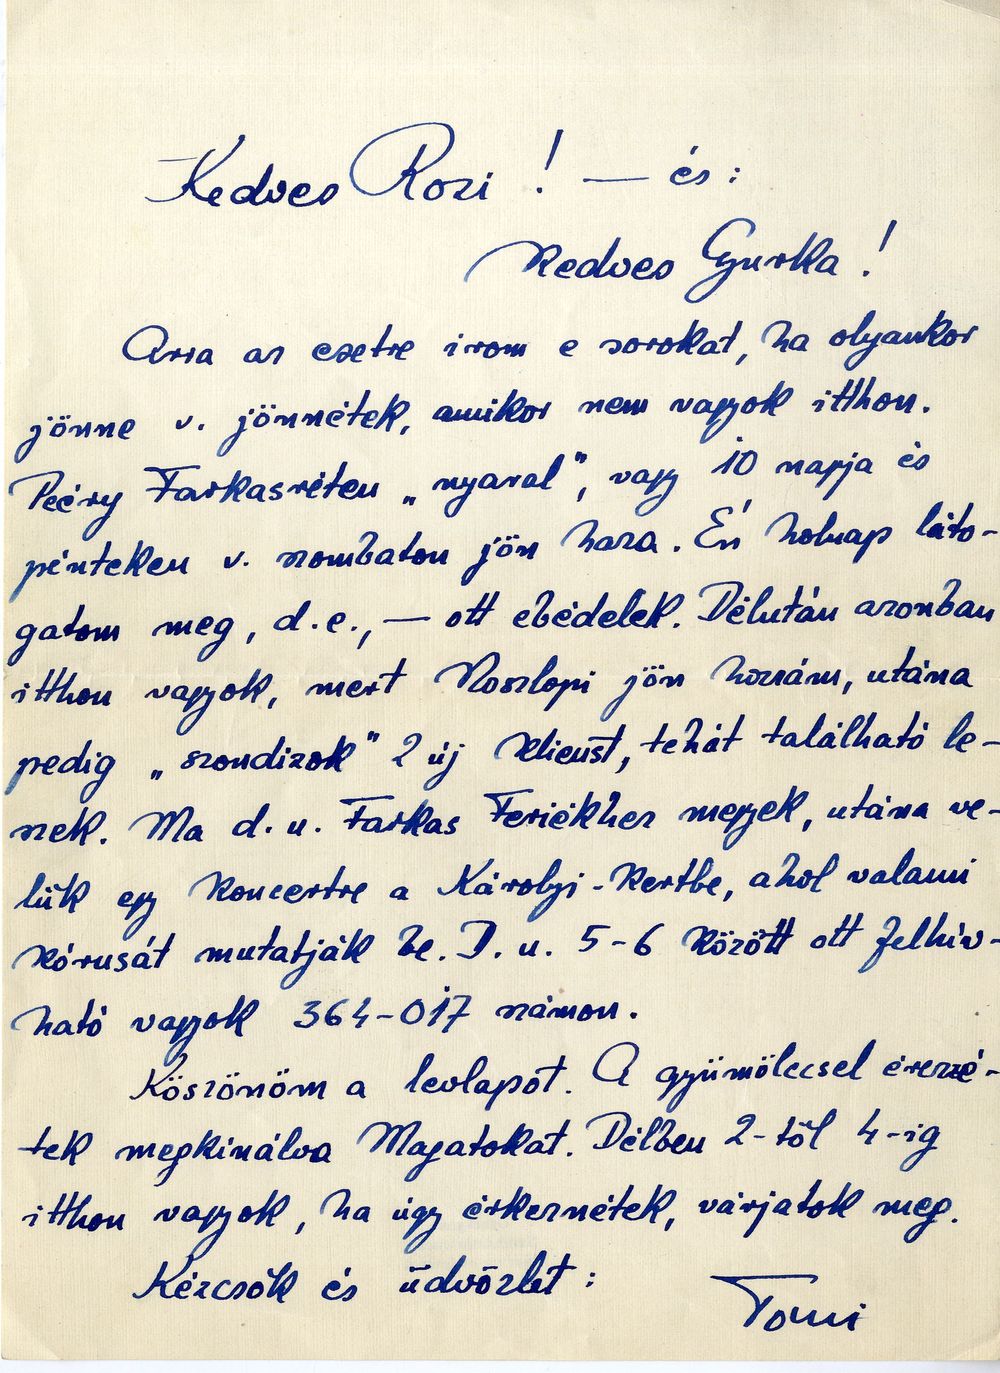 Kedves Rozi! — és:
Kedves Gyurka!
Arra az esetre irom e sorokat, ha olyankor
jönne v. jönnétek, amikor nem vagyok itthon.
Péery Farkasréten „nyaral”, vagy 10 napja és
pénteken v. szombaton jön haza. Én holnap láto-
gatom meg, d.e., — ott ebédelek. Délután azonban
itthon vagyok, mert Noszlopi jön hozzám, utána
pedig „szondizok” 2 új klienst, tehát található le-
szek. Ma d.u. Farkas Feriékhez megyek, utána ve-
lük egy koncertre a Károlyi-kertbe, ahol valami
kórusát mutatják be. D.u. 5-6 között ott felhiv-
ható vagyok 364-017 számon.
Köszönöm a levlapot. A gyümölccsel érezzé-
tek megkinálva Magatokat. Délben 2-től 4-ig
itthon vagyok, ha úgy érkeznétek, várjatok meg.
Kézcsók és üdvözlet:
Tomi